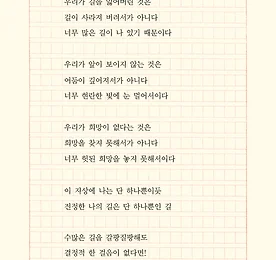 우리가 길을 잃어버린 것은
길이 사라져 버려서가 아니다
너무 많은 길이 나 있기 때문이다
우리가 앞이 보이지 않는 것은
어둠이 깊어져서가 아니다
너무 현란한 빛에 눈 멀어서이다
우리가 희망이 없다는 것은
희망을 찾지 못해서가 아니다
너무 헛된 희망을 놓지 못해서이다
이 지상에 나는 단 하나뿐이듯
진정한 나의 길은 단 하나뿐인 길
수많은 길을 갈팡질팡해도
결정적 한 걸음이 없다면!